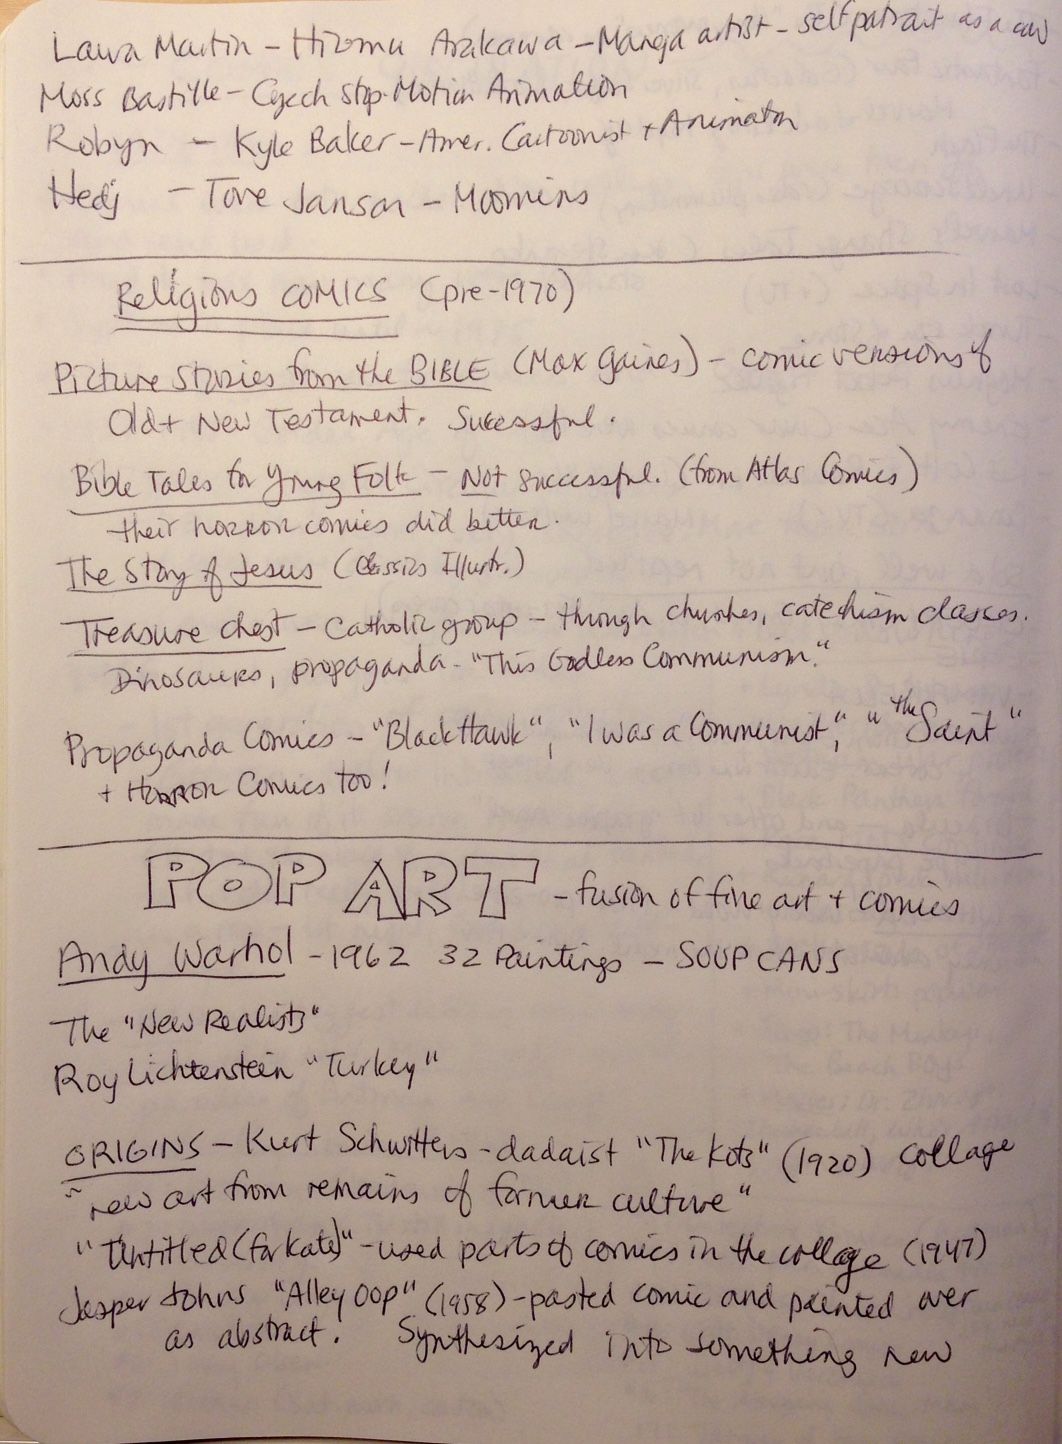 Laura Martin - Hiromu Arakawa - Manga artist - self patrait as a cow
Moss Bastille - Czech stop-Motion Animation
Robyn - Kyle Baker - Amer. Cartoonist + Animator
Hedj - Tove Janson - Moomins
Religious COMICS (pre-1970)
Picture Stories from the BIBLE (Max Gaines) - comic versions of
Old + New Testament. Successful.
Bible Tales for Young Folk - Not successful. (from Atlas Comics)
their HORROR comics did better.
The Story of Jesus (Classics Illustr.)
Treasure Chest - Catholic group - through churches, catechism classes.
Dinosaurs, propaganda - "This Godless Communism."
Propaganda Comics - "BlackHawk", "I was a Communist", "the Saint"
+ HORROR Comics too!
POP ART - fusion of fine art + comics
Andy Warhol - 1962 32 Paintings - SOUP CANS
The "New Realists"
Roy Lichtenstein "Turkey"
ORIGINS - Kurt Schwitters - dadaist "The Kots" (1920) collage
"new art from remains of former culture"
"Untitled (for Kate)" - used parts of comics in the collage (1947)
Jasper Johns "Alley Oop" (1958) - pasted comic and painted over
as abstract. Synthesized into something new